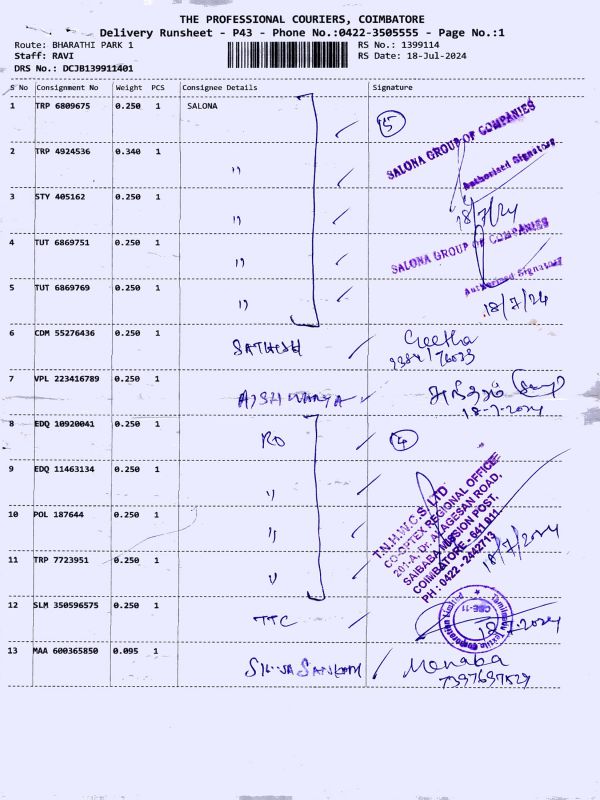 THE PROFESSIONAL COURIERS, COIMBATORE
Delivery Runsheet - P43 - Phone No.:0422-3505555 - Page No.:1
Route: BHARATHI PARK 1
RS No.: 1399114
Staff: RAVI
RS Date: 18-Jul-2024
DRS No.: DCJB139911401
S No Consignment No Weight PCS Consignee Details Signature
1 TRP 6809675 0.250 1 SALONA 5
SALONA GROUP OF COMPANIES
Authorised Signatory
2 TRP 4924536 0.340 1 "
18/7/24
3 STY 405162 0.250 1 "
SALONA GROUP OF COMPANIES
Authorised Signatory
4 TUT 6869751 0.250 1 "
5 TUT 6869769 0.250 1 "
18/7/24
6 CDM 55276436 0.250 1 SATHISH Geetha
7 VPL 223416789 0.250 1 AISHWARYA
18-7-2024
8 EDQ 10920041 0.250 1 RO 4
9 EDQ 11463134 0.250 1 "
10 POL 187644 0.250 1 "
11 TRP 7723951 0.250 1 "
T.N.H.W.C.S. LTD
CO-OPTEX REGIONAL OFFICE
201-A, Dr. ALAGESAN ROAD,
SAIBABA MISSION POST,
COIMBATORE - 641 011.
PH : 0422 - 2442713
18/7/2024
12 SLM 350596575 0.250 1 TTC
Tamilnadu Textile Corporation Limited
CBE-11
18.7.2024
13 MAA 600365850 0.095 1 SIVA SANKARI